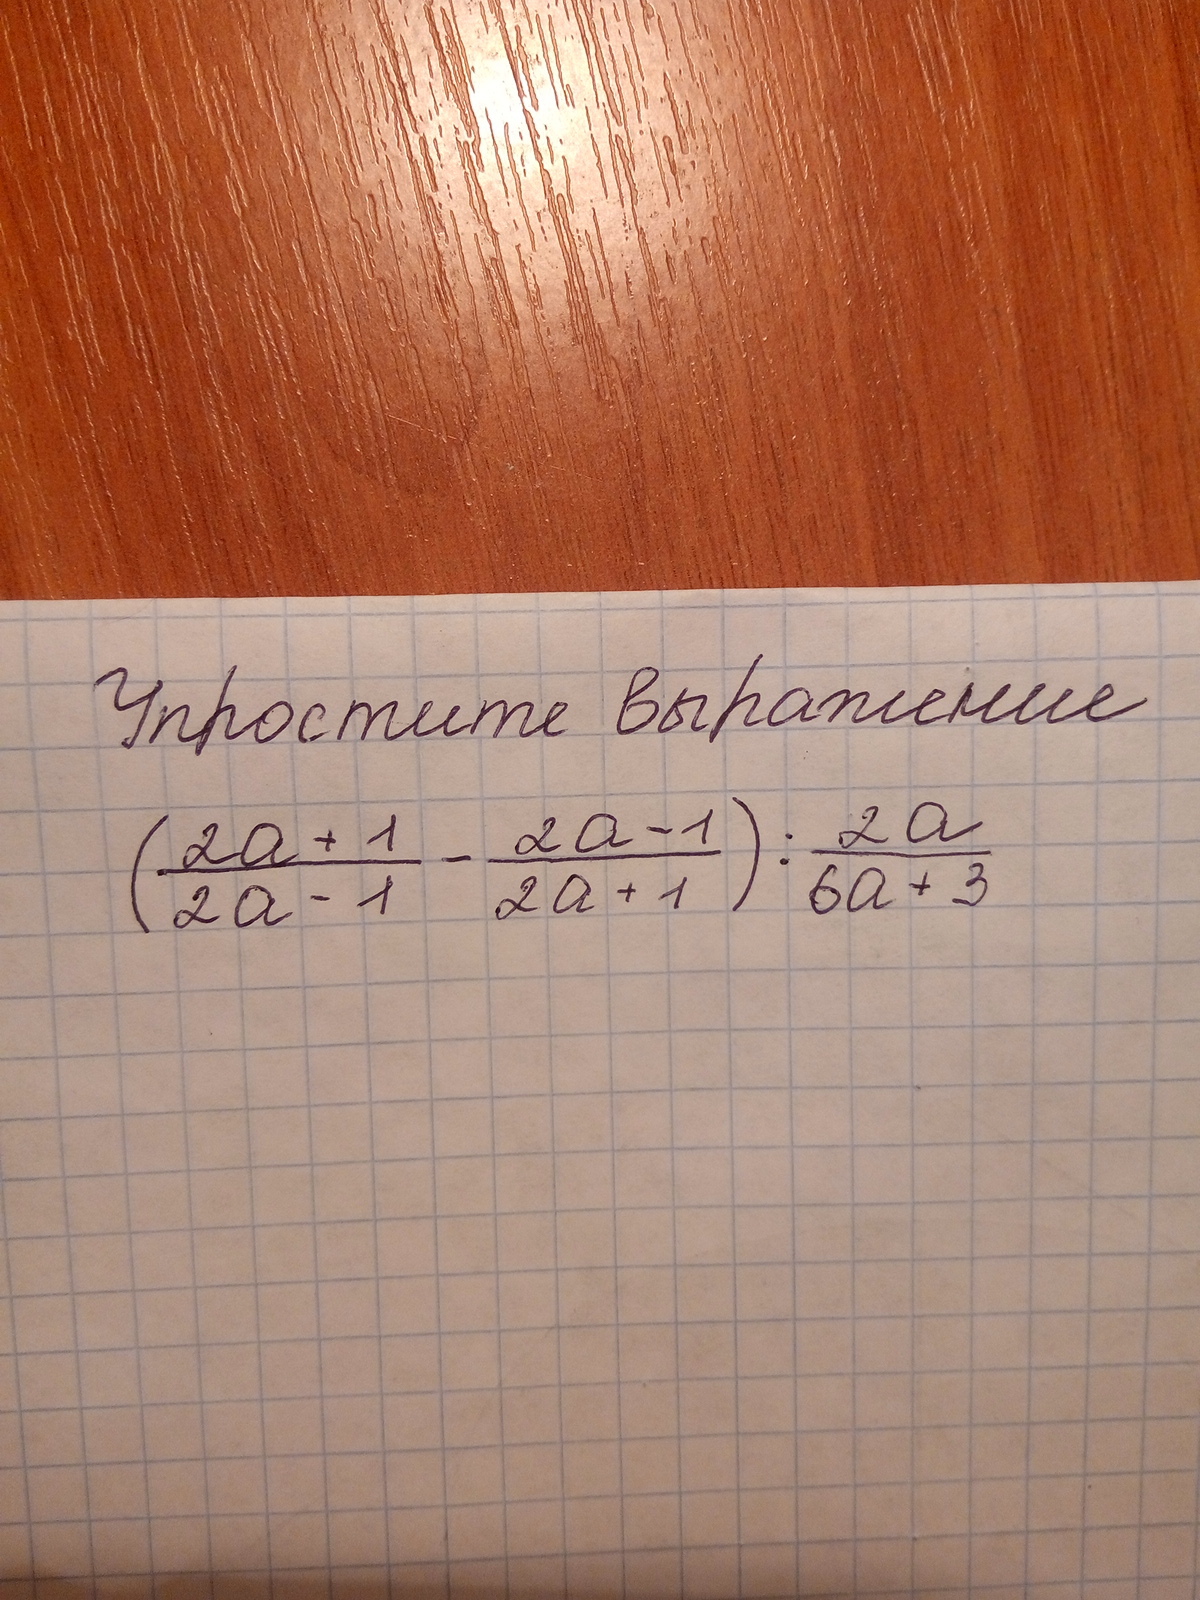 Упростите выражение
(\frac{2a+1}{2a-1} - \frac{2a-1}{2a+1}) : \frac{2a}{6a+3}